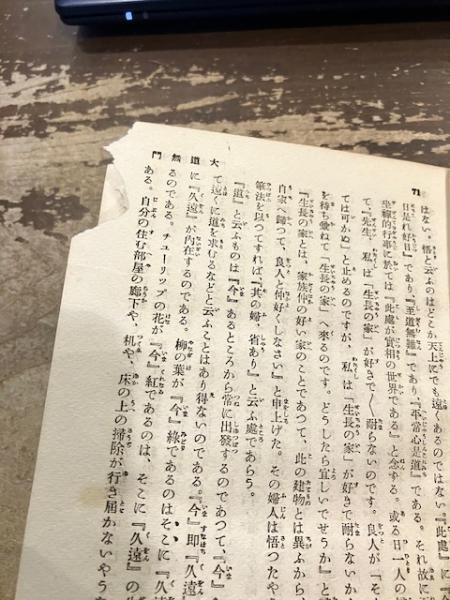 71
大道無門
はない。悟と云ふのはどこか天上にでも遠くあるのではない。『此處』に
日是れ好日』であり、『至道無難』であり、『平常心是道』である。それ故に
行事に於ては『此處が實相の世界である』と念ずる。或る日一人の
て、『先生、私は『生長の家』が好きで〱耐らないのです。良人が『そ
ては可かぬ』と止めるのですが、私は『生長の家』が好きで耐らないか
を持ち兼ねて『生長の家』へ來るのです。どうしたら宜しいでせうか』と
『生長の家とは、家族仲の好い家のことであつて、此の建物とは異ふから、
自家へ歸つて、良人と仲好くしなさい』と申上げた。その婦人は悟つたや
筆法を以つてすれば、『其の婦、省あり』と云ふ處であらう。
『道』と云ふものは『今』あるところから常に出發するのであつて、『今』
て遠くに道を求むるなどと云ふことはあり得ないのである。『今』即『久遠
に『久遠』が内在するのである。柳の葉が『今』綠であるのはそこに『久遠
るのである。チューリップの花が『今』紅であるのは、そこに『久遠』の
ある。自分の住む部屋の廊下や、机や、床の上の掃除が行き屆かないやうな